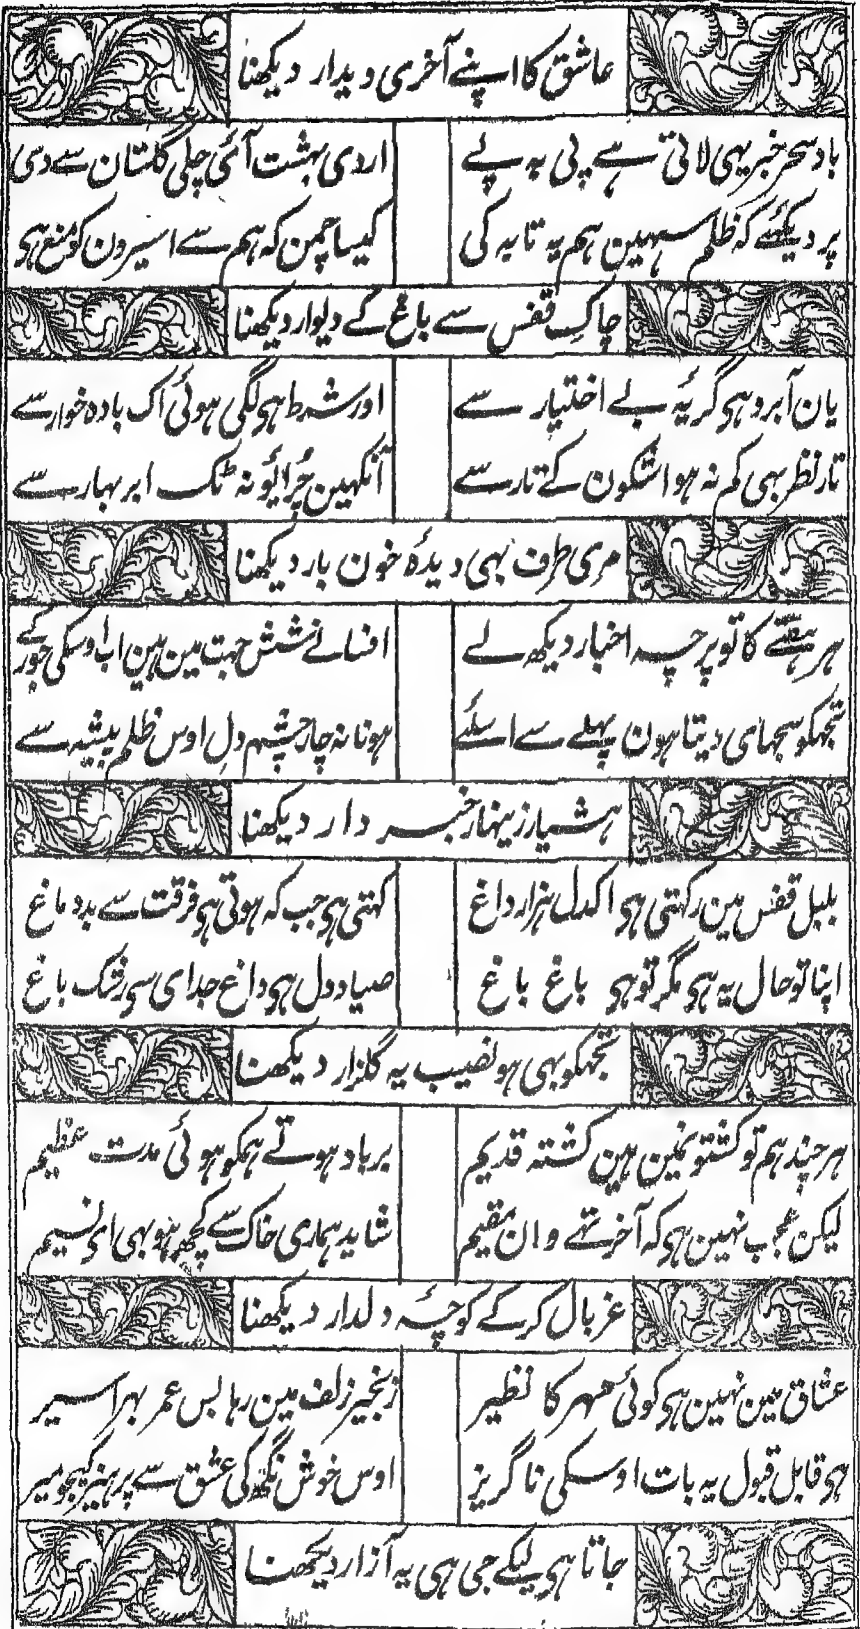 عاشق کا اپنے آخری دیدار دیکھنا
باد سحر خبر یہی لاتی ہے پی بہ پے اردی بہشت آئی چلی گلستان سے دی
پر دیکہئے کہ ظلم سہین ہم یہ تابہ کی کیسا چمن کہ ہم سے اسیرون کو منع ہی
چاکِ قفس سے باغ کے دیوار دیکھنا
یان آبرو ہی گریۂ بے اختیار سے اور شرط ہی لگی ہوئی اک بادہ خوار سے
تار نظر بہی کم نہ ہو اشکون کے تار سے آنکہین چُرائیو نہ ٹک ابر بہار سے
مری طرف بہی دیدۂ خون بار دیکھنا
ہر ہفتے کا تو پرچہ اخبار دیکھ لے افسانے شش جہت مین ہین اب اوسکی جور کے
تجہکو سجہای دیتا ہون پہلے سے اسلئے ہونا نہ چار چشم دل اوس ظلم پیشہ سے
ہشیار زینہار خبر دار دیکھنا
بلبل قفس مین رکہتی ہی اکدل ہزار داغ کہتی ہی جب کہ ہوتی ہی فرقت سے بد دماغ
اپنا تو حال یہ ہی مگر تو ہی باغ باغ صیاد دل ہی داغ جدای سی رشک باغ
تجہکو بہی ہو نصیب یہ گلزار دیکھنا
ہر چند ہم تو کشتونمین ہین کشتہ قدیم برباد ہوتے ہمکو ہوئی مدت عظیم
لیکن عجب نہین ہی کہ آخر تہے وان مقیم شاید ہماری خاک سے کچھ ہو بہی ای نسیم
غربال کر کے کوچۂ دلدار دیکھنا
عشاق مین نہین ہی کوئی مہر کا نظیر زنجیر زلف مین رہا بس عمر بہر اسیر
ہی قابل قبول یہ بات اوسکی ناگریز اوس خوش نگھ کی عشق سے پرہیز کیجو میر
جاتا ہی لیکے جی ہی یہ آزار دیکھنا